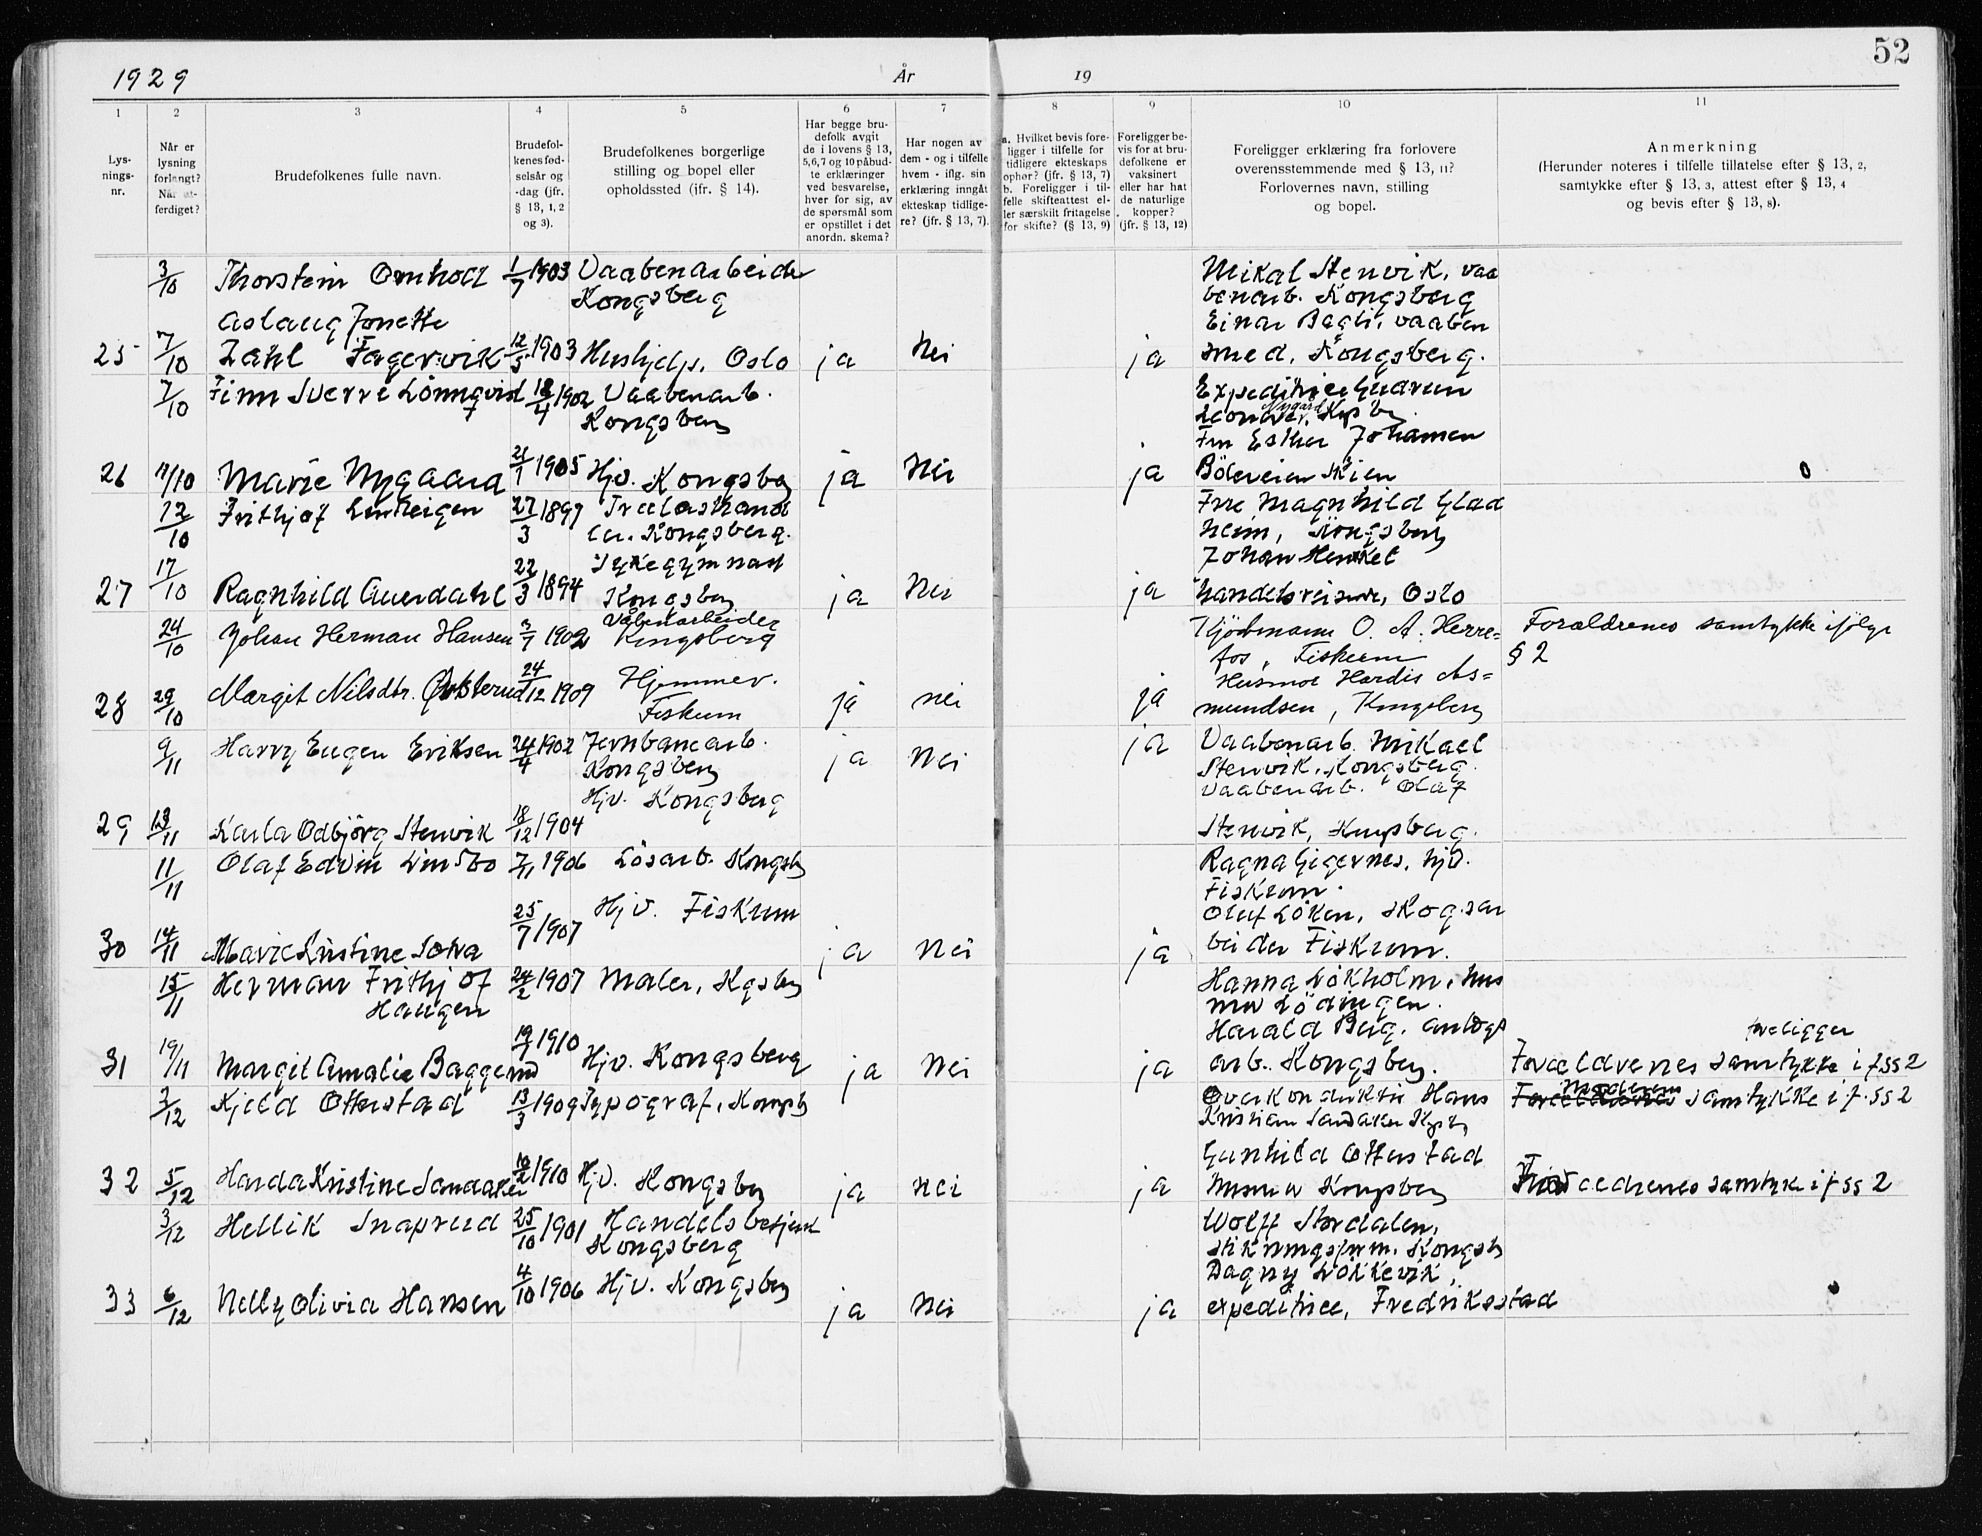 1929 År 19 52
1 2 3 4 5 6 7 8 9 10 11
Lys-
nings-
nr.
Når er
lysning
forlangt?
Når ut-
ferdiget?
Brudefolkenes fulle navn.
Brudefol-
kenes fød-
selsår og
-dag (jfr.
§ 13, 1, 2
og 3).
Brudefolkenes borgerlige
stilling og bopel eller
opholdssted (jfr. § 14).
Har begge bru-
defolk avgit
de i lovens § 13,
5,6,7 og 10 påbud-
te erklæringer
ved besvarelse,
hver for sig, av
de spørsmål som
er opstillet i det
anordn. skema?
Har nogen av
dem - og i tilfelle
hvem - iflg. sin
erklæring inngått
ekteskap tidlige-
re? (jfr. § 13, 7).
a. Hvilket bevis fore-
ligger i tilfelle for
tidligere ekteskaps
ophør? (jfr. § 13, 7)
b. Foreligger i til-
felle skifteattest el-
ler særskilt fritagelse
for skifte? (§ 13, 9)
Foreligger be-
vis for at bru-
defolkene er
vaksinert
eller har hat
de naturlige
kopper?
(jfr. § 13, 12)
Foreligger erklæring fra forlovere
overensstemmende med § 13, 11?
Forlovernes navn, stilling
og bopel.
Anmerkning
(Herunder noteres i tilfelle tillatelse efter § 13, 2,
samtykke efter § 13, 3, attest efter § 13, 4
og bevis efter § 13, 8).
3/10 Thorstein Omholt 1/7 1903 Vaabenarbeider
Kongsberg
Mikal Stenvik, vaa
benarb. Kongsberg
Einar Bagli, vaaben
Aslaug Jonette
25 7/10 Zahl Fagervik 12/5 1903 Hushjelp, Oslo ja Nei ja smed, Kongsberg.
7/10 Finn Sverre Lönnqvist 18/4 1902 Vaabenarb.
Kongsberg
Expeditrice Gudrun
Nygård
Kgsbg.
Frn Esther Johansen
26 11/10 Marie Nygaard 21/1 1905 Hjv. Kongsbg ja Nei ja Böleveien Skien
12/10 Frithjof 27/3 1897 Trælasthand
ler. Kongsberg.
Frue Magnhild Glad
heim, Kongsberg
Johan Henkel
27 17/10 Ragnhild Auerdahl 22/3 1894 Sykegymnast
Kongsberg ja Nei ja handelsreisende, Oslo
24/10 Johan Herman Hansen 3/7 1902 Våbenarbeider
Kongsberg
Kjöbmann O. A. Herre-
fos, Fiskum
Forældrenes samtykke ifølge
§ 2
28 29/10 Margit Nilsdtr. Øksterud 24/12 1909 Hjemmev.
Fiskum ja nei ja Husmor Hardis As-
mundsen, Kongsberg
9/11 Harry Eugen Eriksen 24/4 1902 Jernbanearb.
Kongsberg ja Nei ja Vaabenarb. Mikael
Stenvik, Kongsberg.
Vaabenarb. Olaf
29 13/11 Karla Odbjörg Stenvik 18/12 1904 Hjv. Kongsberg
Stenvik, Kongsberg.
11/11 Olaf Edvin Linsbo 7/11 1906 Lösarb. Kongsb
Ragna Gigernes, hjv.
Fiskum.
Oluf Löken, skogsar
30 14/11 Marie Kristine Solva 25/7 1907 Hjv. Fiskum ja Nei ja beider Fiskum.
15/11 Herman Frithjof
Haugen 24/2 1907 Maler, Kgsberg
Hanna Lökholm, hus
mor Lödingen.
Harald Berg, anlægs
31 19/11 Margit Amalie Baggerud 19/7 1910 Hjv. Kongsberg ja Nei ja arb. Kongsberg.
foreligger
Forældrenes samtykke i f. ss 2
3/12 Kjeld Otterstad 13/3 1909 Typograf, Kongsb
Overkonduktør Hans
Kristian Sandaker Kgsb
Moderens
Forældrenes samtykke i f. ss 2
Gunhild Otterstad
32 5/12 Harda Kristine Sandaker 10/2 1910 Hjv. Kongsberg ja nei ja husmor Kongsberg Forældrenes samtyke i f ss 2
3/12 Hellik Snaprud 25/10 1901 Handelsbetjent
Kongsberg
Wolff Stordalen,
Kongsb
Dagny Lökkevik,
33 6/12 Nelly Olivia Hansen 4/10 1906 Hjv. Kongsberg ja Nei ja expeditrice, Fredriksstad